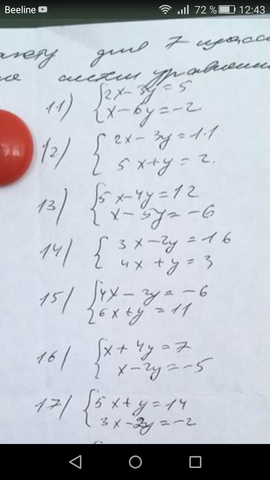 Beeline 72 % 12:43
для 7
11) { 2x - 3y = 5
x - 6y = -2
12) { 2x - 3y = 11
5x + y = 2.
13) { 5x - 4y = 12
x - 5y = -6
14) { 3x - 2y = 16
4x + y = 3
15) { 4x - 3y = -6
6x + y = 11
16) { x + 4y = 7
x - 2y = -5
17) { 5x + y = 14
3x - 2y = -2